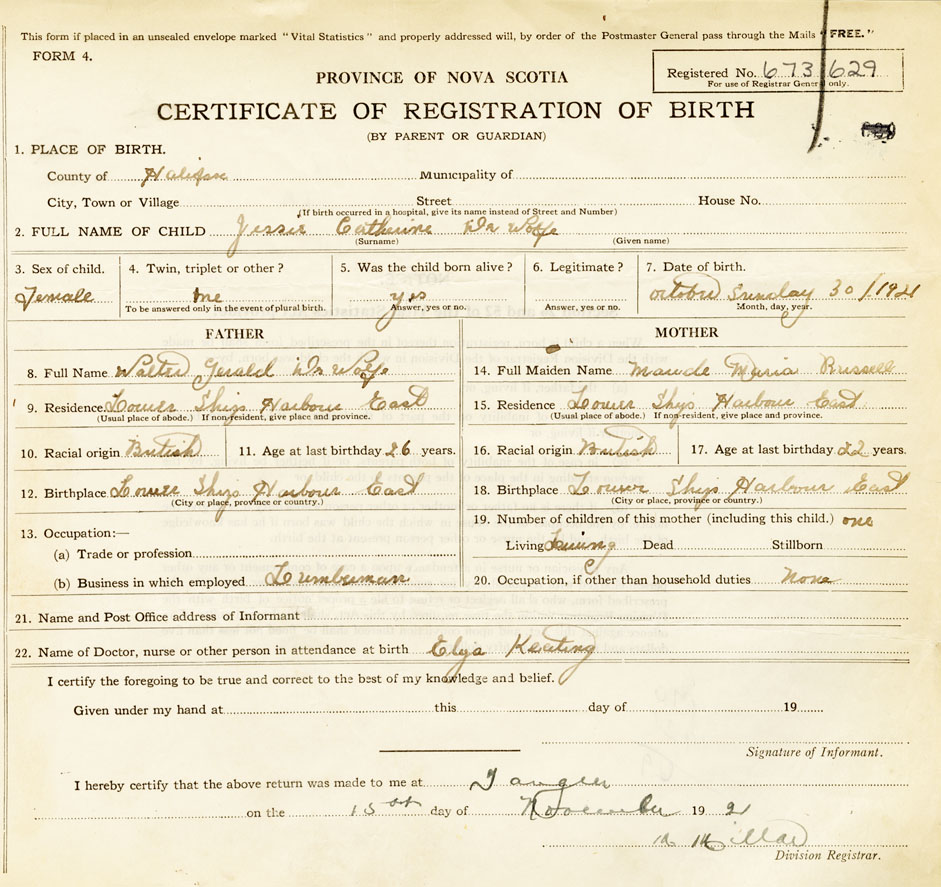 This form if placed in an unsealed envelope marked "Vital Statistics" and properly addressed will, by order of the Postmaster General pass through the Mails "FREE."
FORM 4.
PROVINCE OF NOVA SCOTIA
Registered No. 673 629
For use of Registrar General only.
CERTIFICATE OF REGISTRATION OF BIRTH
(BY PARENT OR GUARDIAN)
1. PLACE OF BIRTH.
County of Halifax Municipality of
City, Town or Village Street House No.
(If birth occurred in a hospital, give its name instead of Street and Number)
2. FULL NAME OF CHILD Jessie Catherine De Wolfe
(Surname) (Given name)
3. Sex of child. 4. Twin, triplet or other? 5. Was the child born alive? 6. Legitimate? 7. Date of birth.
Female yes october Sunday 30/1921
To be answered only in the event of plural birth. Answer, yes or no. Answer, yes or no. Month, day, year.
FATHER MOTHER
8. Full Name Walter Gerald De Wolfe 14. Full Maiden Name Maude Maria Russell
9. Residence Lower Ship Harbour East 15. Residence Lower Ship Harbour East
(Usual place of abode.) If non-resident, give place and province. (Usual place of abode.) If non-resident, give place and province.
10. Racial origin British 11. Age at last birthday 26 years. 16. Racial origin British 17. Age at last birthday 22 years.
12. Birthplace Lower Ship Harbour East 18. Birthplace Lower Ship Harbour East
(City or place, province or country.) (City or place, province or country.)
13. Occupation:— 19. Number of children of this mother (including this child.) one
(a) Trade or profession Living Living Dead Stillborn
(b) Business in which employed Lumberman 20. Occupation, if other than household duties None
21. Name and Post Office address of Informant
22. Name of Doctor, nurse or other person in attendance at birth Eliza Keating
I certify the foregoing to be true and correct to the best of my knowledge and belief.
Given under my hand at this day of 19
Signature of Informant.
I hereby certify that the above return was made to me at Tangier
on the 15th day of November 1921
Division Registrar.